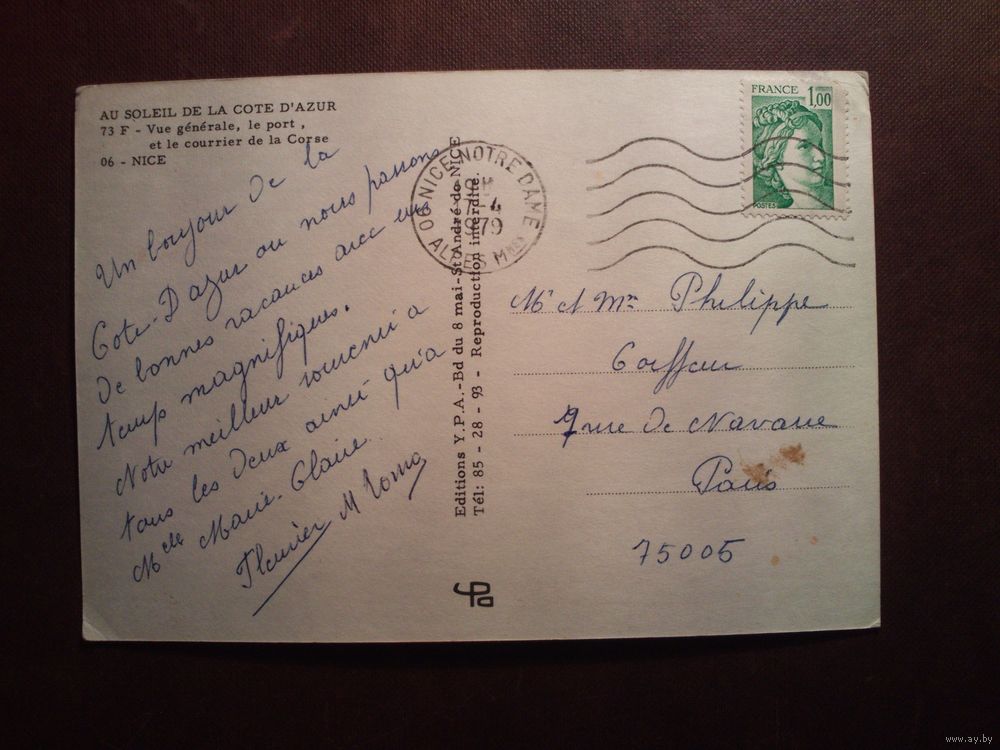 AU SOLEIL DE LA COTE D'AZUR
73 F - Vue générale, le port,
et le courrier de la Corse
06 - NICE
Un bonjour De la
Cote-D'azur ou nous passons
De bonnes vacances avec un
temps magnifiques.
Notre meilleur souvenir a
tous les Deux ainsi qu'a
Melle Marie-Claire.
Editions Y.P.A.-Bd du 8 mai-St André de NICE
Tél: 85 - 28 - 93 - Reproduction interdite.
06 NICE NOTRE DAME
1979
ALPES Mmes
FRANCE 1,00
POSTES
Mr et Mme Philippe
Coiffeur
7 rue De Navarre
Paris
75005
www.ay.by